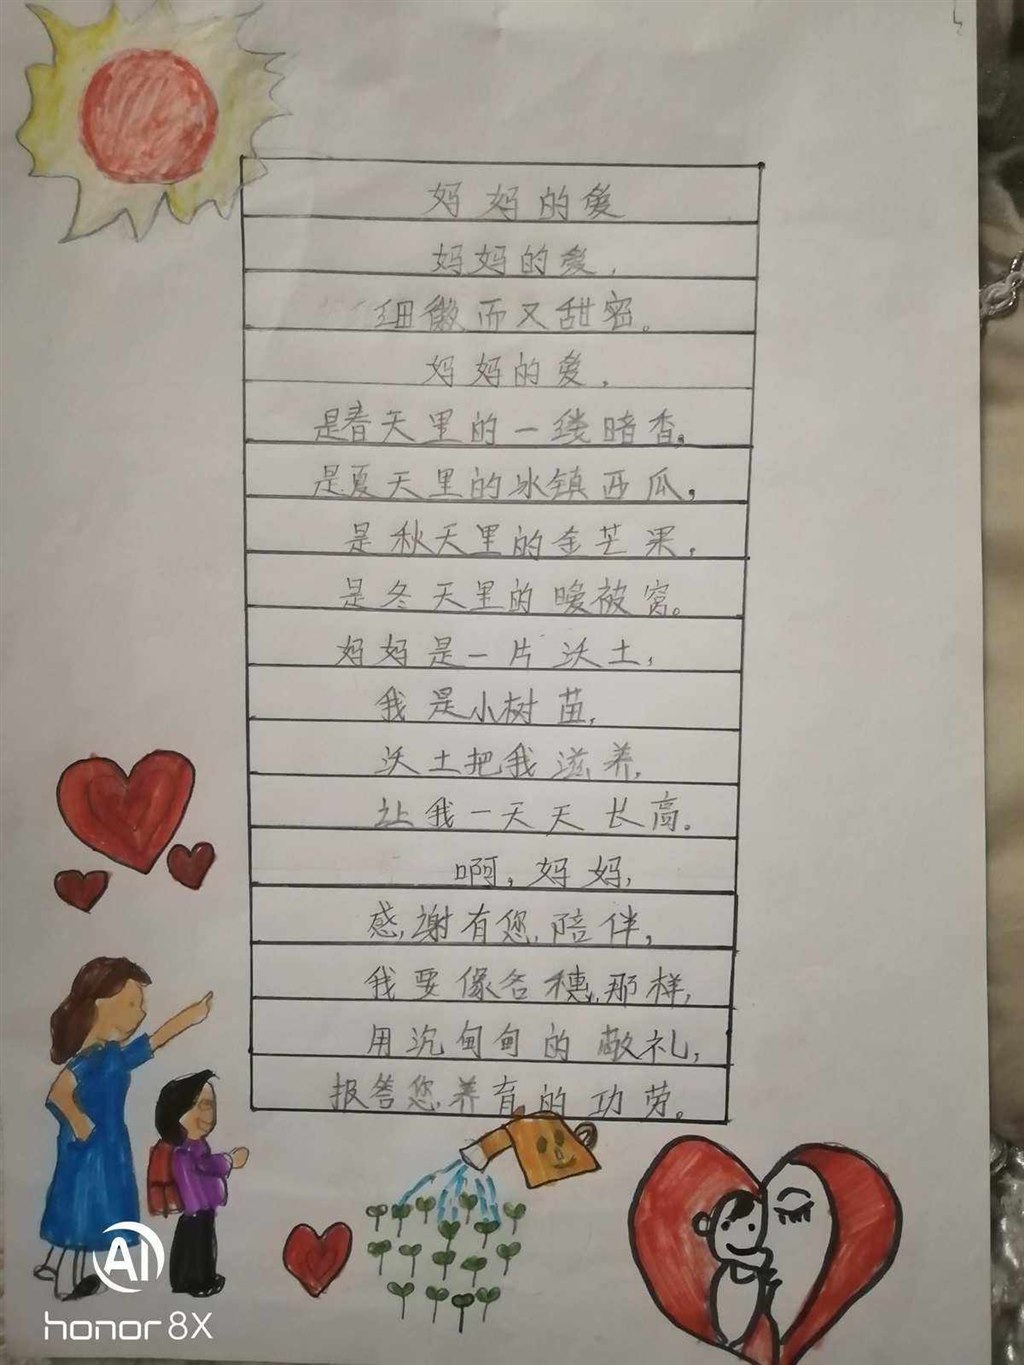 妈妈的爱
妈妈的爱，
细微而又甜密。
妈妈的爱，
是春天里的一缕暗香，
是夏天里的冰镇西瓜，
是秋天里的金芒果，
是冬天里的暖被窝。
妈妈是一片沃土，
我是小树苗，
沃土把我滋养，
让我一天天长高。
啊，妈妈，
感谢有您陪伴，
我要像谷穗那样，
用沉甸甸的敬礼，
报答您养育的功劳。
AI
honor 8X